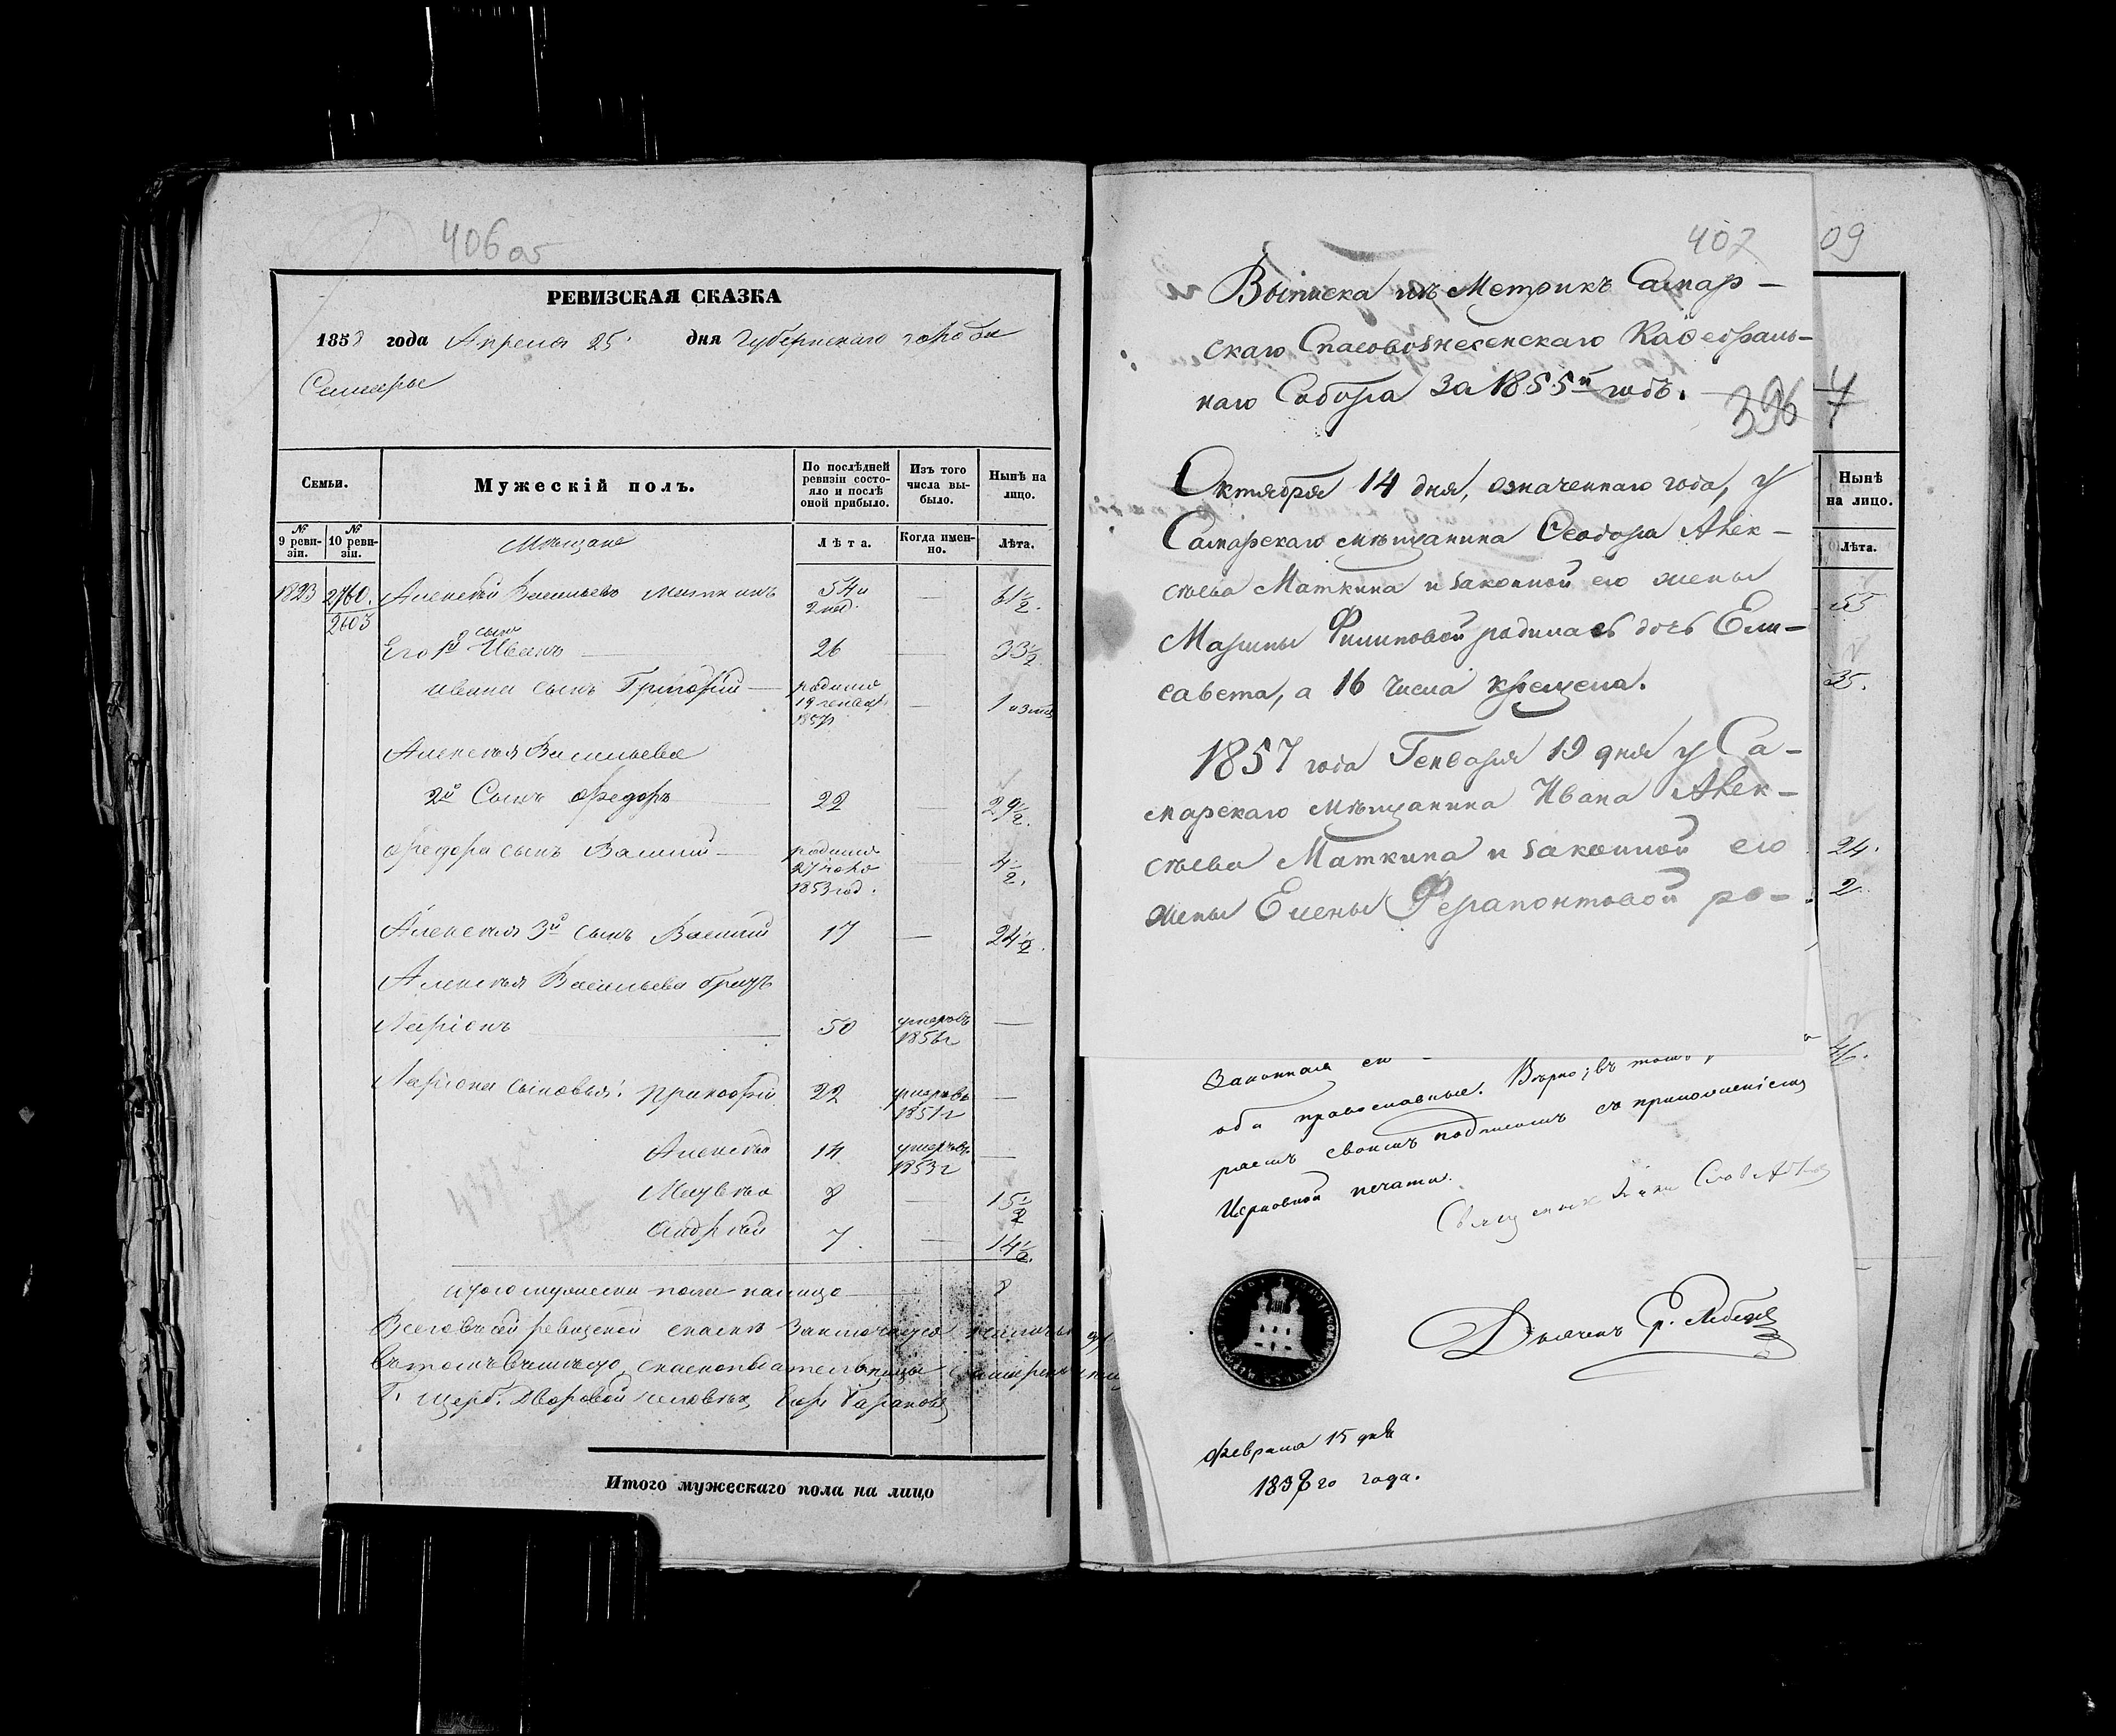 406 об
РЕВИЗСКАЯ СКАЗКА
1858 года Апреля 25 дня Губернскаго города
Самары
Семьи.
Мужескій полъ.
По послѣдней ревизіи состояло и послѣ оной прибыло.
Изъ того числа выбыло.
Нынѣ на лицо.
№ 9 ревизіи.
№ 10 ревизіи.
Мѣщане
Лѣта.
Когда именно.
Лѣта.
1823 2760. Алексѣй Васильевъ Маткинъ 54 и 2 мѣс. — 61½.
2603
Его 1й сынъ Иванъ 26 — 33½
Ивана сынъ Григорій родился 19 генвар. 1857 — 1
Алексѣя Васильева
2й Сынъ Федоръ 22 — 29½.
Федора сынъ Василій родился 1853 год. — 4½.
Алексѣя 3й сынъ Василій 17 — 24½.
Алексѣя Васильева братъ
Ларіонъ 50 умеръ 1856г —
Ларіона сыновья: Григорій 22 умеръ —
Алексѣй 14 умеръ 1853г —
Матвѣй 8 — 15½
Андрей 7. — 14½.
Итого мужеска пола налицо 8
Всего въ сей ревизской сказкѣ
Итого мужескаго пола на лицо
407
09
Выписка изъ Метрикъ Самар-
скаго Спасовознесенскаго Каѳедраль-
наго Собора за 1855й годъ.
396
4
Октября 14 дня, означеннаго года, у
Самарскаго мѣщанина Ѳеодора Алек-
сѣева Маткина и законной его жены
Марины Филиповой родилась дочь Ели-
савета, а 16 числа крещена.
1857 года Генваря 19 дня у Са-
марскаго мѣщанина Ивана Алек-
сѣева Маткина и законной его
жены Елены Ферапонтовой ро-
Законная его
оба православные. Вѣрно; въ томъ
своимъ подписомъ съ приложеніемъ
Церковной печати.
Священник
Дьяконъ
Февраля 15 дня
1858го года.
Нынѣ на лицо.
Лѣта.
55
35.
24.
2.
46.